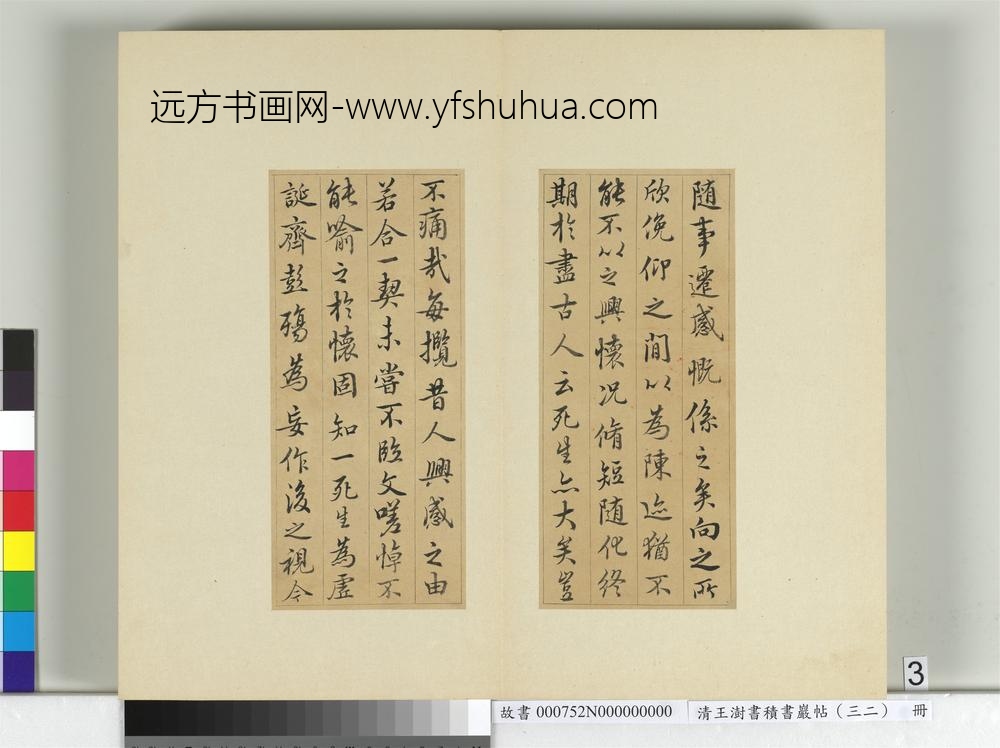 远方书画网-www.yfshuhua.com
随事遷感慨係之矣向之所
欣俛仰之間以為陳迹猶不
能不以之興懷況脩短随化終
期於盡古人云死生亦大矣豈
不痛哉每攬昔人興感之由
若合一契未嘗不臨文嗟悼不
能喻之於懷固知一死生為虛
誕齊彭殤為妄作後之視今
3
故書 000752N000000000
清王澍書積書巖帖（三二） 冊